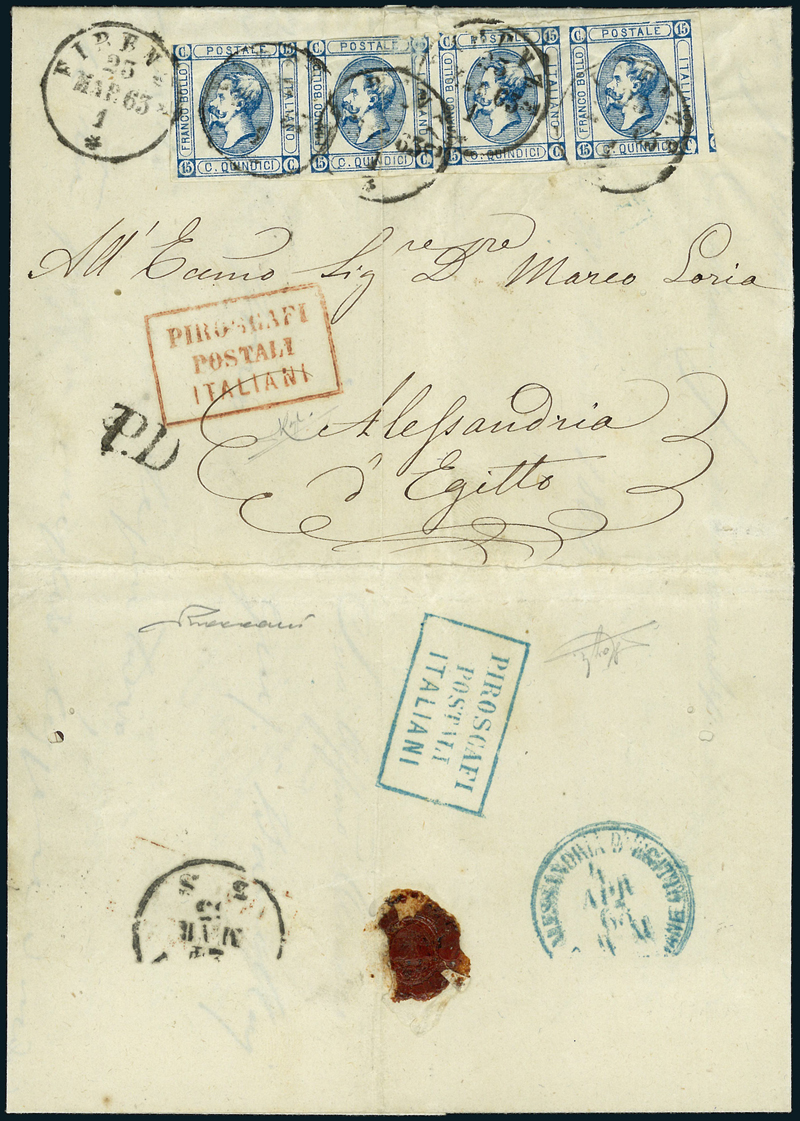 FIRENZE
25
MAR 63
1
*
C POSTALE 15
FRANCO BOLLO
ITALIANO
15 C. QUINDICI C
C POSTALE 15
FRANCO BOLLO
ITALIANO
15 C. QUINDICI C
C POSTALE 15
FRANCO BOLLO
ITALIANO
15 C. QUINDICI C
C POSTALE 15
FRANCO BOLLO
ITALIANO
15 C. QUINDICI C
All' Ecmo Sigre Dre Marco Loria
PIROSCAFI
POSTALI
ITALIANI
P.D
Alessandria
d' Egitto
PIROSCAFI
POSTALI
ITALIANI
ALESSANDRIA D'EGITTO
APR